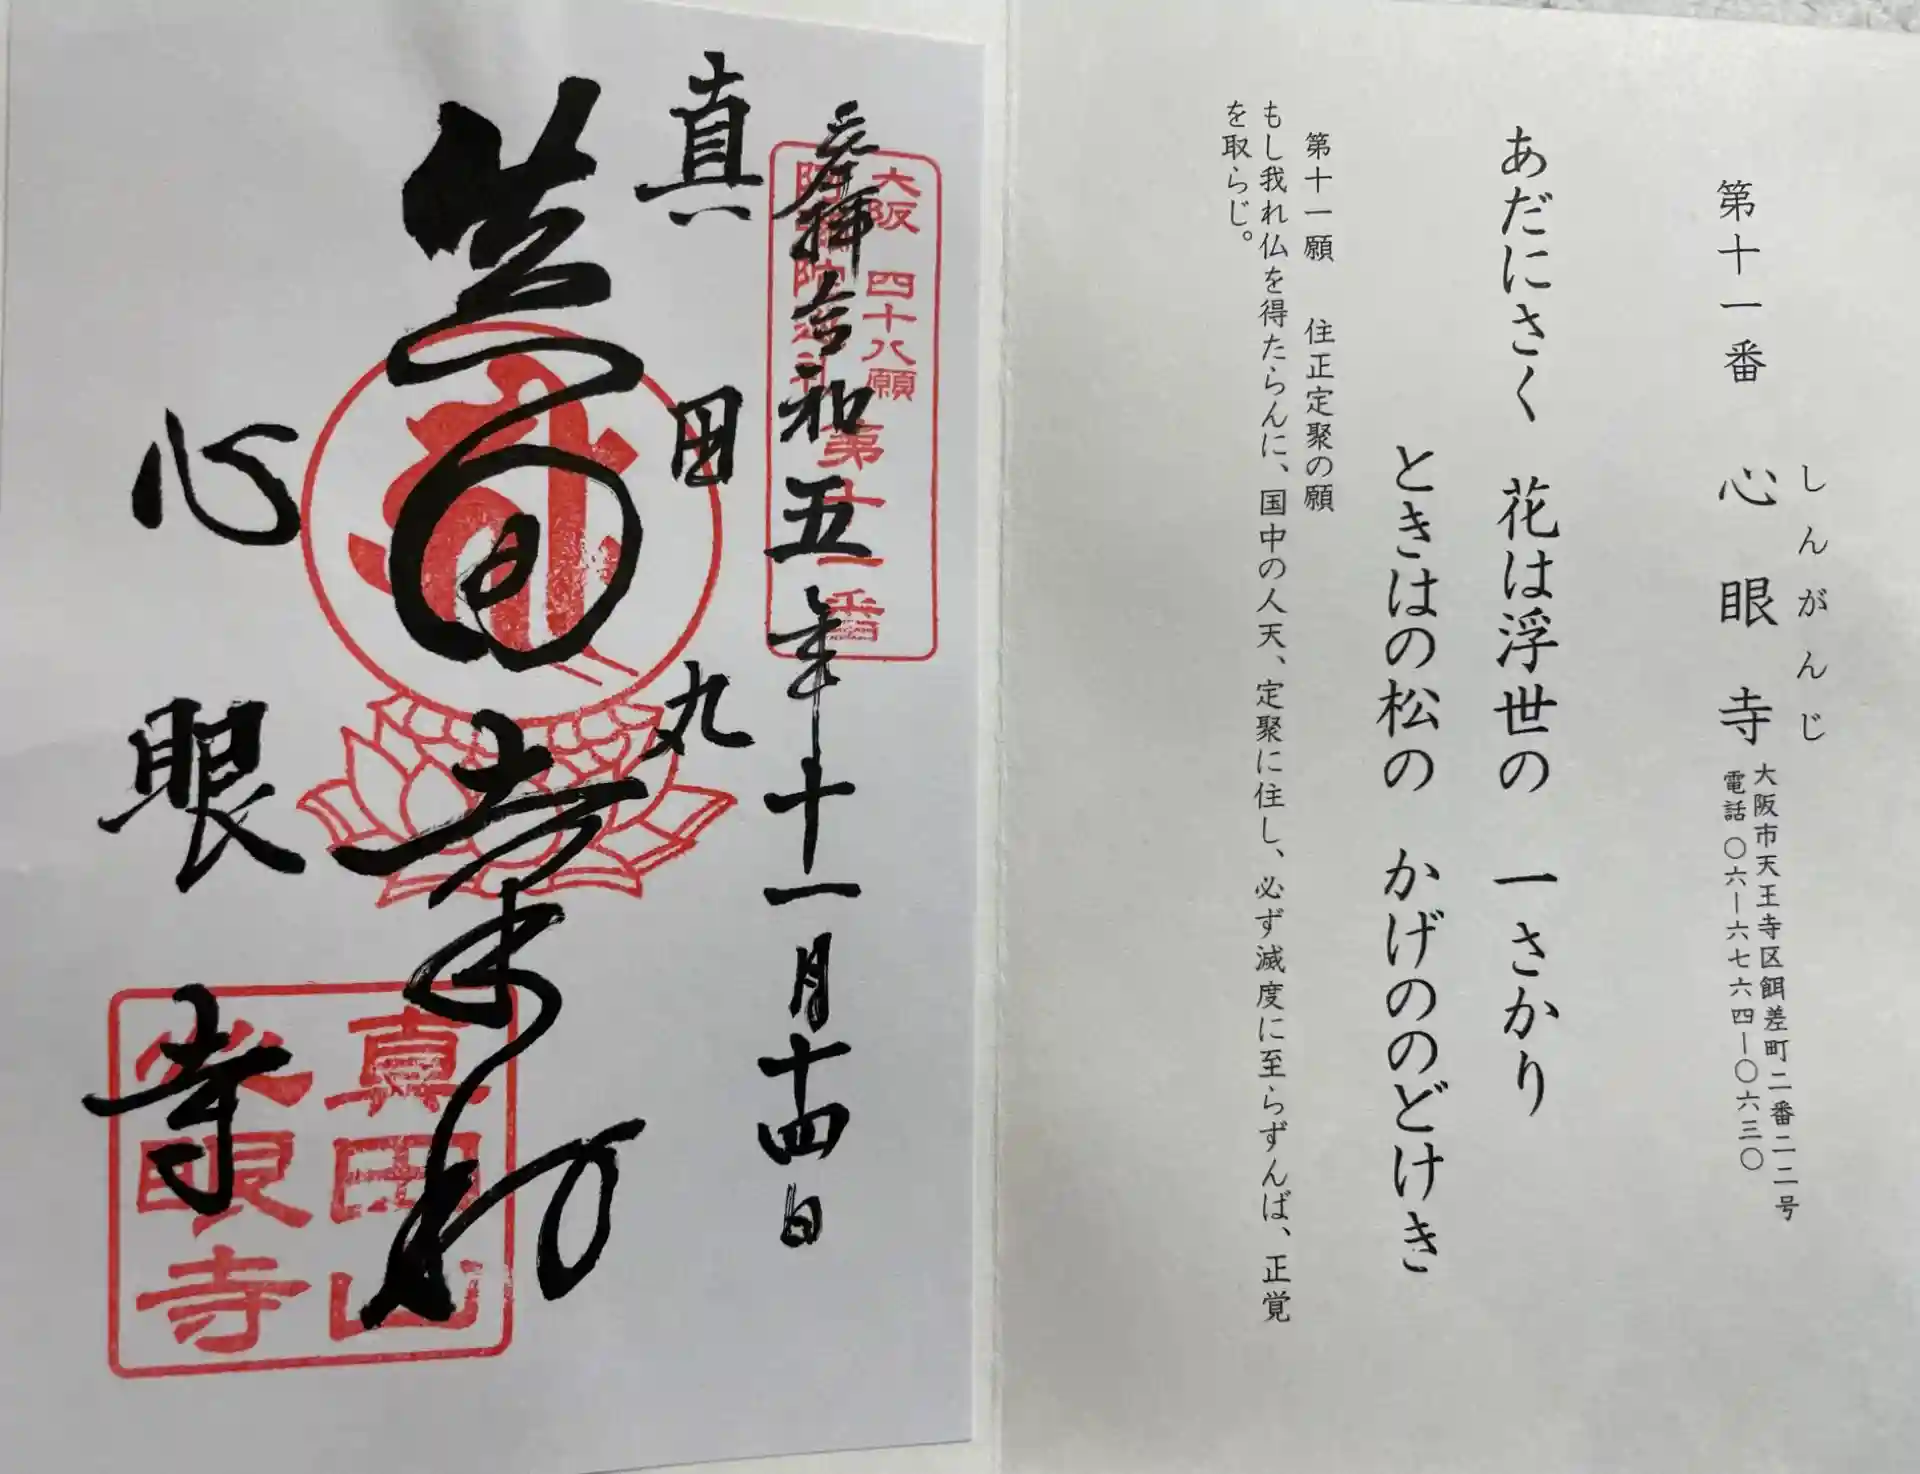 第十一番 心眼寺
しんがんじ
大阪市天王寺区餌差町二番二二号
電話〇六ー六七六四ー〇六三〇
あだにさく 花は浮世の 一さかり
ときはの松の かげののどけき
第十一願 住正定聚の願
もし我れ仏を得たらんに、国中の人天、定聚に住し、必ず滅度に至らずんば、正覚
を取らじ。
奉拝 令和五年十一月十四日
大阪 四十八願
阿弥陀巡礼
第十一番
真田丸
心眼寺
真田山
心眼寺